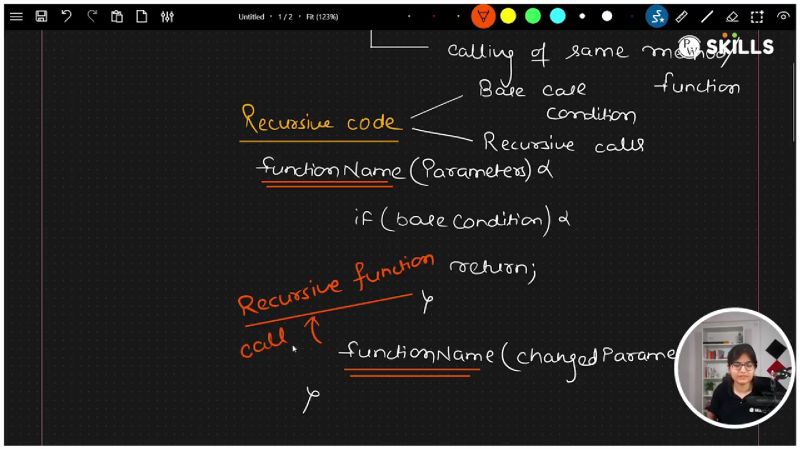 Untitled • 1 / 2 • Fit (123%)
calling of same method/
function
PW SKILLS
Base case
condition
Recursive code
Recursive calls
functionName (Parameters) {
if (base condition) {
return;
}
Recursive function
call
functionName (changedParame
}
SKILLS